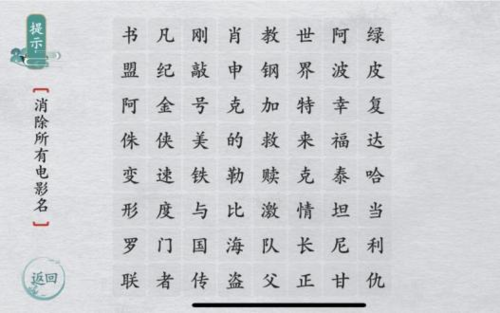 提示
[消除所有电影名]
书凡刚肖教世阿绿
盟纪敲申钢界波皮
阿金号克加特幸复
侏侠美的救来福达
变速铁勒赎克泰哈
形度与比激情坦当
罗门国海队长尼利
联者传盗父正甘仇
返回